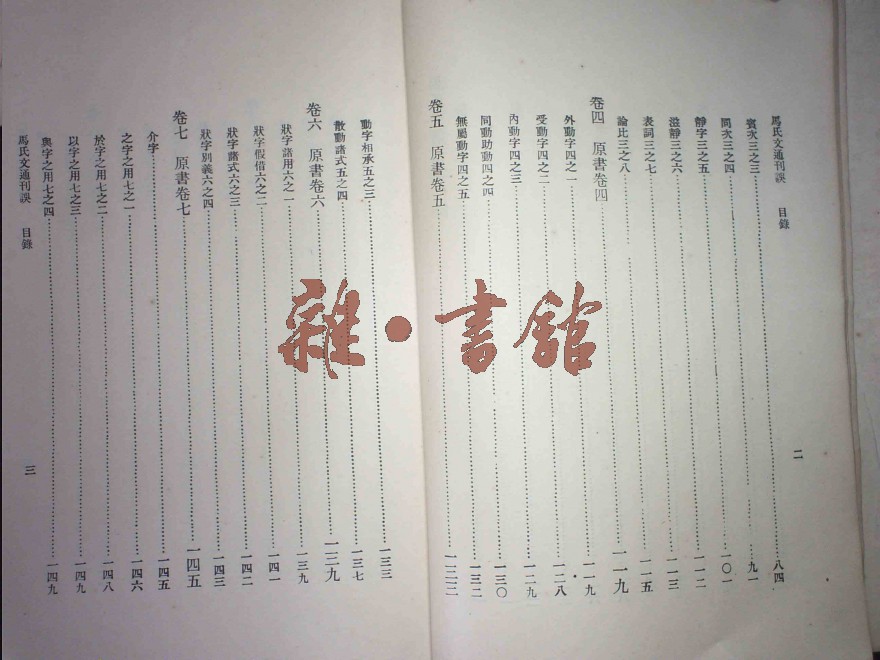 馬氏文通刊誤 目錄 二
賓次三之三 八四
同次三之四 九一
靜字三之五 一〇一
滋靜三之六 一一二
表詞三之七 一一三
論比三之八 一一五
卷四 原書卷四 一一九
外動字四之一 一一九
受動字四之二 一二八
內動字四之三 一二九
同動助動四之四 一三〇
無屬動字四之五 一三二
卷五 原書卷五 一三三
動字相承五之三 一三三
散動諸式五之四 一三七
卷六 原書卷六 一三九
狀字諸用六之一 一三九
狀字假借六之二 一四一
狀字諸式六之三 一四二
狀字別義六之四 一四三
卷七 原書卷七 一四五
介字 一四五
之字之用七之一 一四六
於字之用七之二 一四八
以字之用七之三 一四九
與字之用七之四 一四九
馬氏文通刊誤 目錄 三
雜·書館